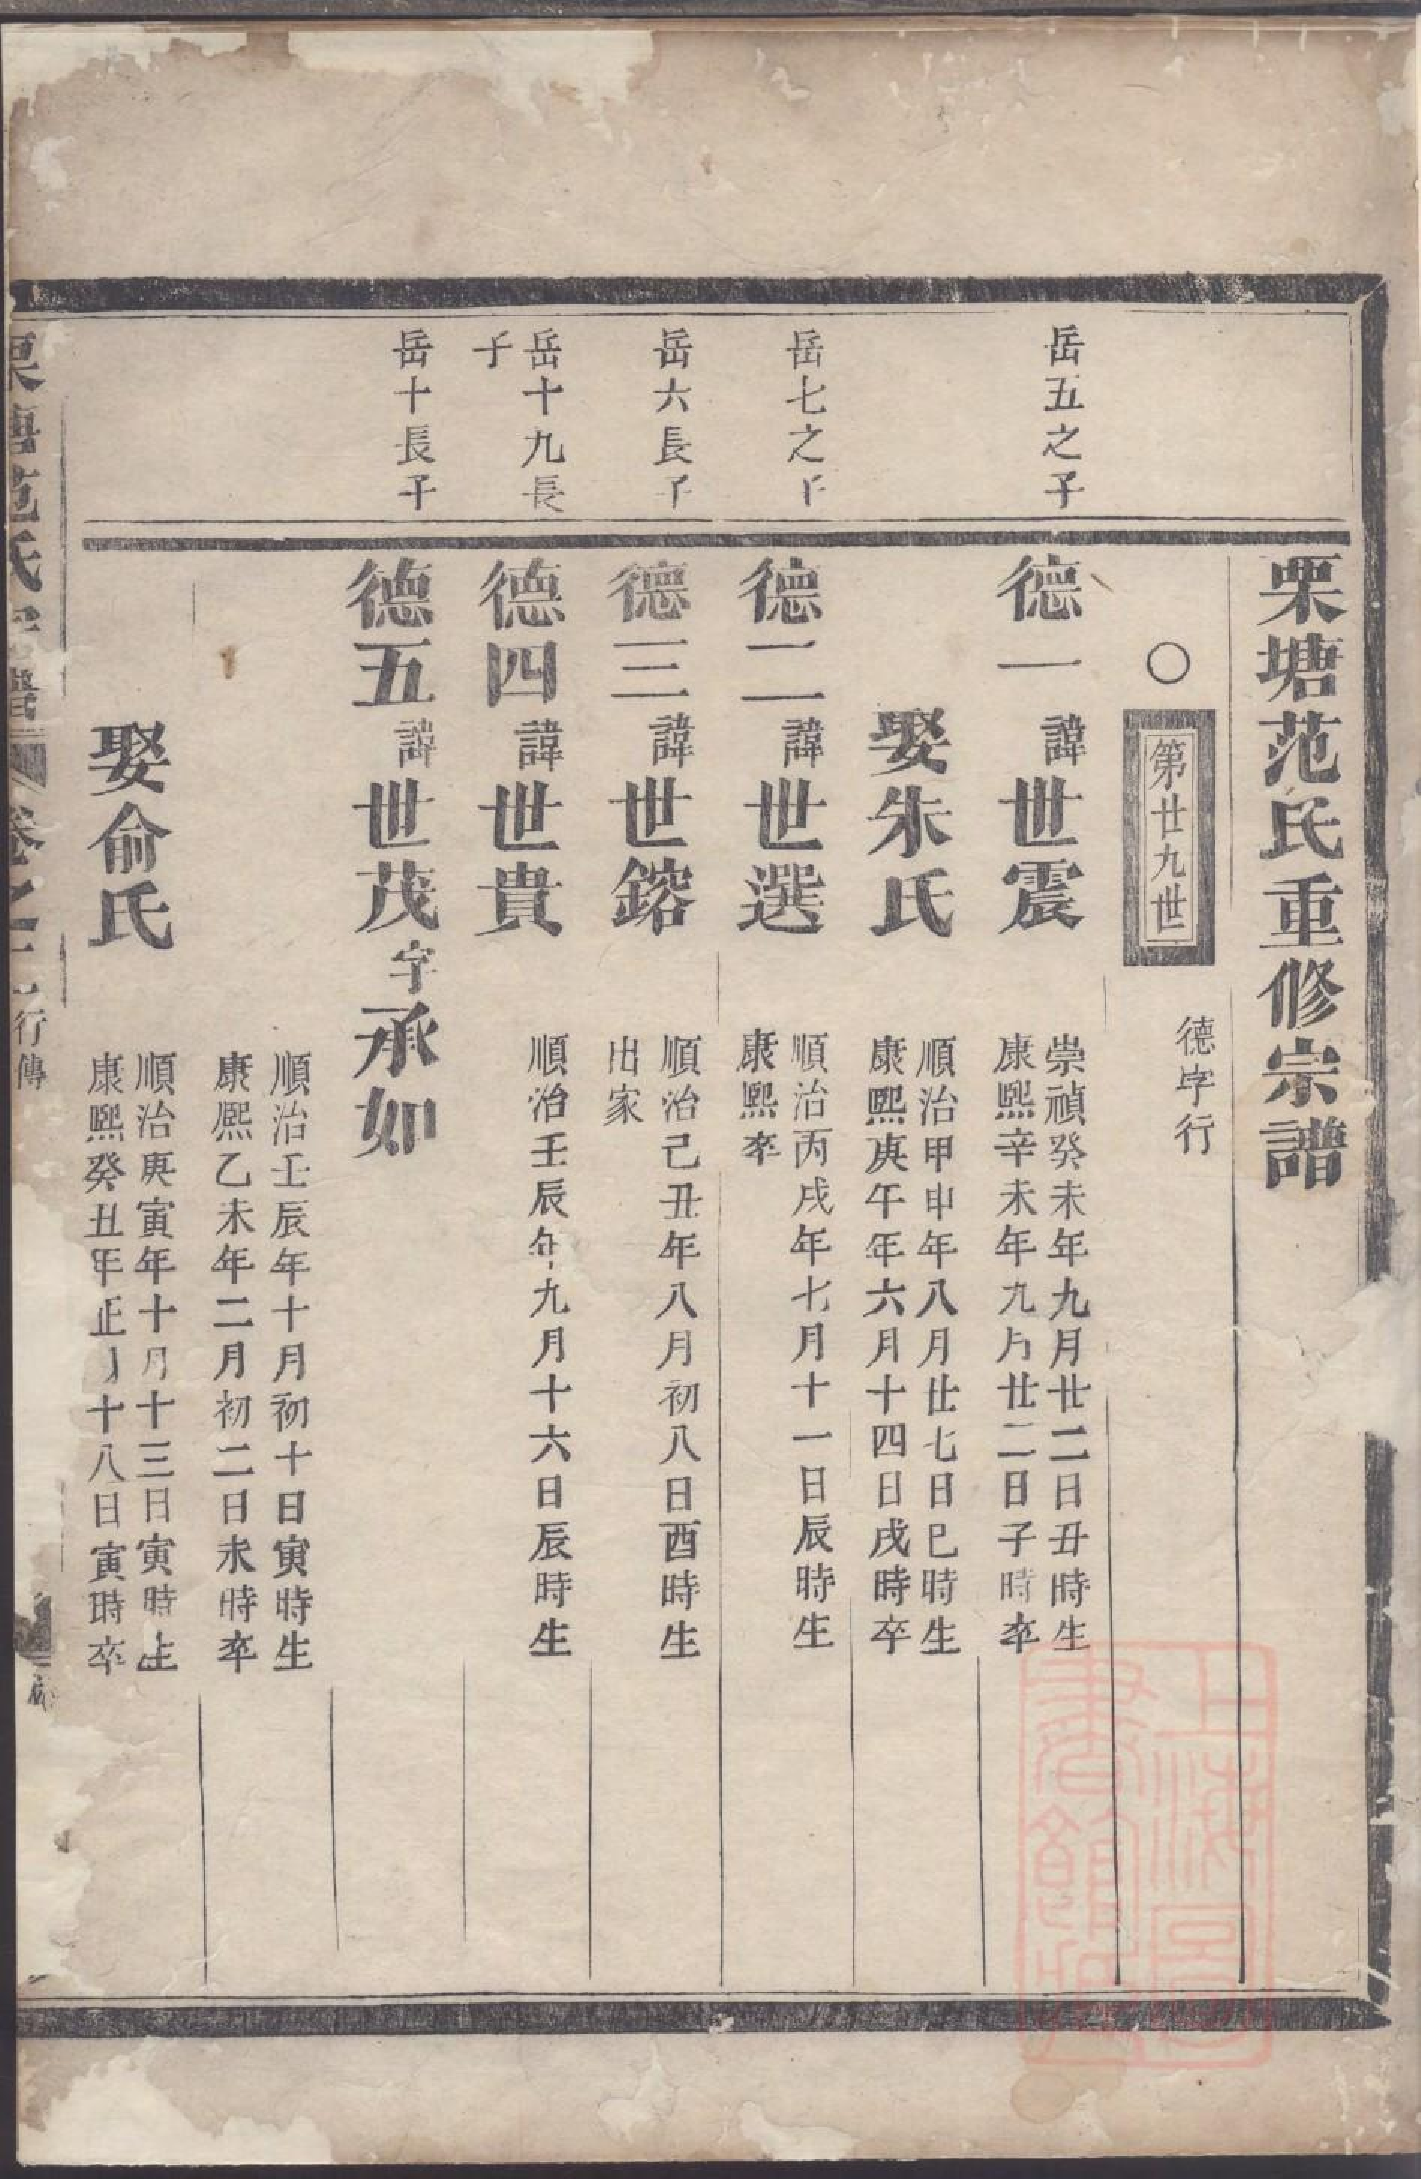 栗塘范氏重修宗譜
○第廿九世 德字行
岳五之子
德一諱世震
崇禎癸未年九月廿二日丑時生
康熙辛未年九月廿二日子時卒
娶朱氏
順治甲申年八月廿七日巳時生
康熙庚午年六月十四日戌時卒
岳七之子
德二諱世選
順治丙戌年七月十一日辰時生
康熙卒
岳六長子
德三諱世鎔
順治己丑年八月初八日酉時生
出家
岳十九長
子
德四諱世貴
順治壬辰年九月十六日辰時生
岳十長子
德五諱世茂字承如
順治壬辰年十月初十日寅時生
康熙乙未年二月初二日未時卒
娶俞氏
順治庚寅年十月十三日寅時生
康熙癸丑年正月十八日寅時卒
栗塘范氏宗譜 卷之 行傳
上海圖
書館藏